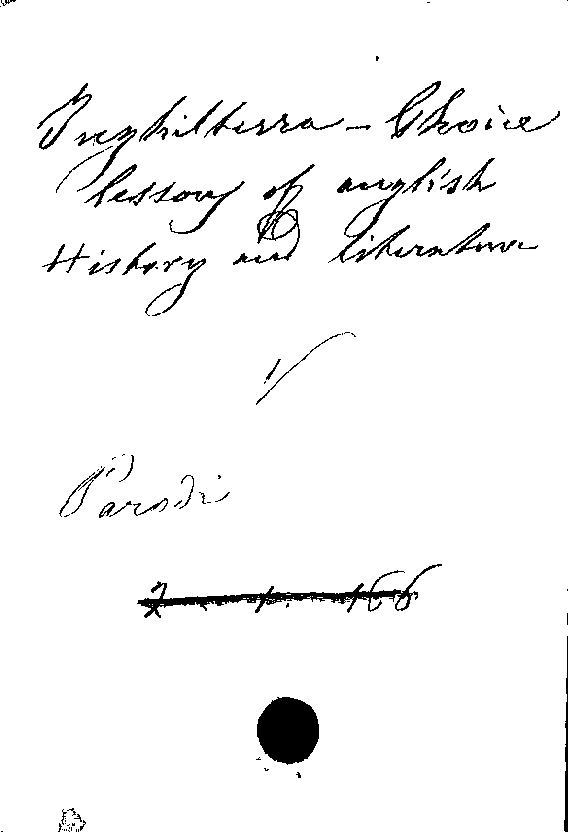 Inghilterra - Choice
lessons of english
History and literature
1/
Parodi
2. 1. 166